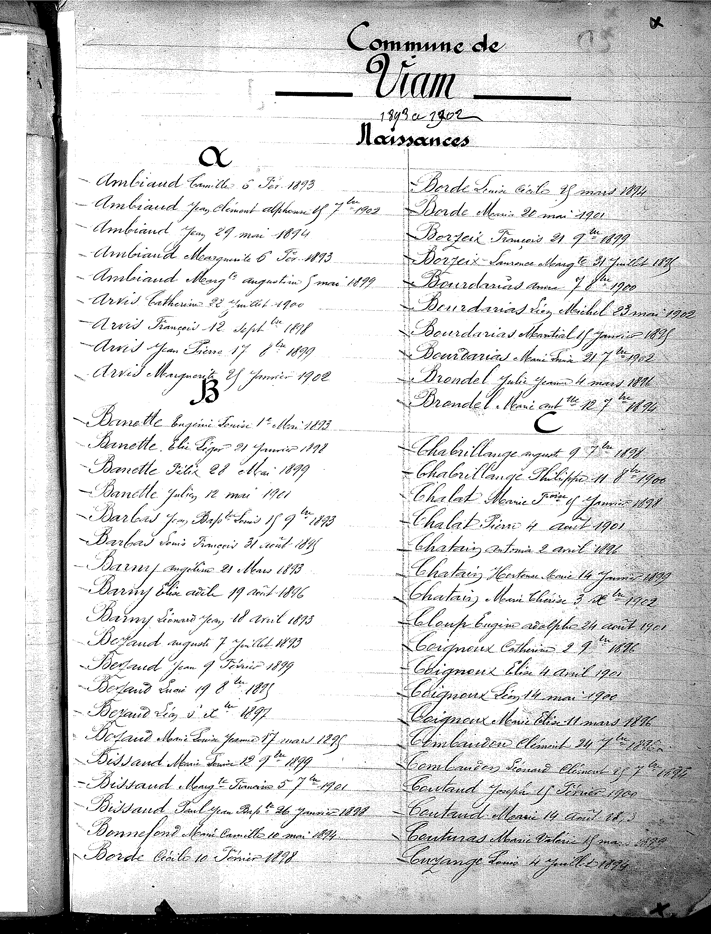 Commune de
Viam
1893 a 1902
Naissances
A
Ambiaud Camille 6 Fév. 1893
Ambiaud Jean Clément Alphonse 15 7bre 1902
Ambiaud Jean 29 mai 1894
Ambiaud Marguerite 6 Fév. 1893
Ambiaud Margte augustine 5 mai 1899
Arvis Catherine 22 Juillet 1900
Arvis François 12 Septbre 1898
Arvis Jean Pierre 17 8bre 1899
Arvis Marguerite 25 Janvier 1902
B
Banette Eugénie Louise 1er Mai 1893
Banette Elie Léger 21 Janvier 1898
Banette Félix 28 Mai 1899
Banette Julien 12 mai 1901
Barbas Jean Bapte Louis 15 9bre 1893
Barbas Louis François 31 août 1895
Barny angéline 21 Mars 1893
Barny Elise adèle 19 août 1896
Barny Léonard Jean 18 avril 1893
Bezaud auguste 7 Juillet 1893
Bezaud Jean 9 Février 1899
Bezaud 19 8bre 1895
Bezaud Léon 5 Xbre 1897
Bezaud Marie Louise Jeanne 17 mars 1895
Bissaud Marie Louise 12 9bre 1899
Bissaud Margte Francine 5 7bre 1901
Bissaud Paul Jean Bapte 26 Janvier 1898
Bonnefond Marie Camille 10 mai 1894
Borde Cécile 10 Février 1898
Borde Louise Cécile 25 mars 1894
Borde Marie 20 mai 1901
Borzeix François 21 9bre 1899
Borzeix Laurence Margte 21 Juillet 1895
Bourdarias anna 7 8bre 1900
Bourdarias Léon Michel 23 mai 1902
Bourdarias Martial 15 Janvier 1895
Bourdarias Marie Louise 21 7bre 1902
Brondel Julie Jeanne 4 mars 1896
Brondel Marie antte 12 7bre 1894
C
Chabrillange auguste 9 7bre 1898
Chabrillange Philippe 11 8bre 1900
Chalat Marie Fçoise 15 Janvier 1898
Chalat Pierre 4 août 1901
Chatain antonin 2 avril 1896
Chatain Hortense Marie 14 Janvier 1899
Chatain Marie Thérèse 3 Xbre 1902
Cloup Eugène adolphe 24 août 1901
Coigneux Catherine 2 9bre 1896
Coigneux Elise 4 avril 1901
Coigneux Léon 14 mai 1900
Coigneux Marie Elise 11 mars 1896
Combaudon Clément 24 7bre
Combaudon Léonard Clément 25 7bre
Coutaud Joseph 15 Février 1900
Coutaud Marie 14 août
Couturas Marie Valérie 15 mai 1899
Cuzange Louis 4 Juillet 1894